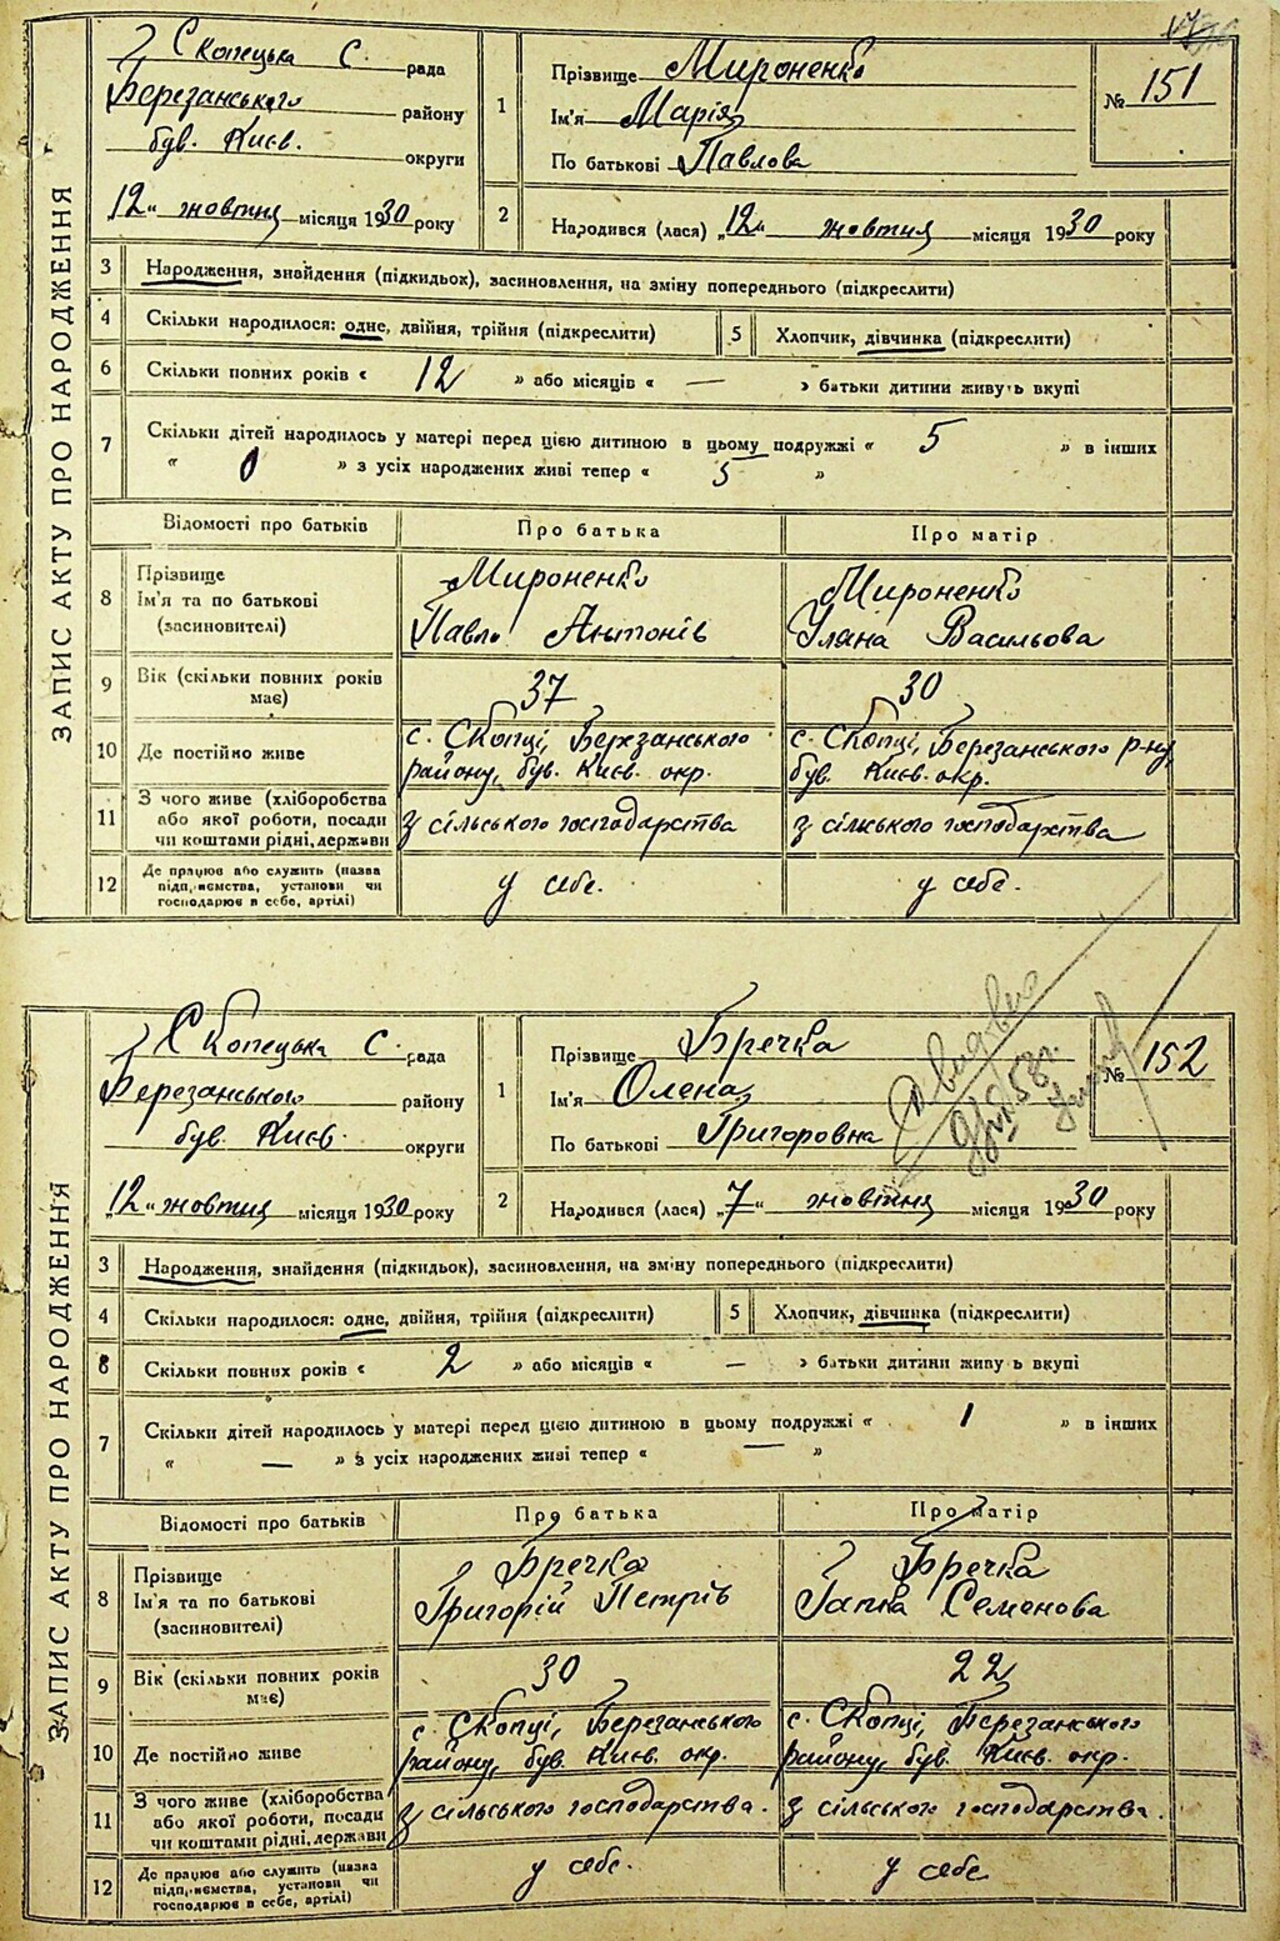 ЗАПИС АКТУ ПРО НАРОДЖЕННЯ
Скопецька С. рада
Березанського району
був. Київ. округи
„12“ жовтня місяця 1930 року
1
Прізвище Мироненко
Ім'я Марія
По батькові Павлова
№ 151
2
Народився (лася) „12“ жовтня місяця 1930 року
3 Народження, знайдення (підкидьок), засиновлення, на зміну попереднього (підкреслити)
4 Скільки народилося: одне, двійня, трійня (підкреслити) 5 Хлопчик, дівчинка (підкреслити)
6 Скільки повних років « 12 » або місяців « — » батьки дитини живуть вкупі
7 Скільки дітей народилось у матері перед цією дитиною в цьому подружжі « 5 » в інших
« 0 » з усіх народжених живі тепер « 5 »
Відомості про батьків Про батька Про матір
8 Прізвище Ім'я та по батькові (засиновителі)
Мироненко Мироненко
Павло Антонів Уляна Васильова
9 Вік (скільки повних років має) 37 30
10 Де постійно живе
с. Скопці, Березанського с. Скопці, Березанського р-ну,
району, був. Київ. окр. був. Київ. окр.
11 З чого живе (хліборобства або якої роботи, посади чи коштами рідні, держави
з сільського господарства з сільського господарства
12 Де працює або служить (назва підприємства, установи чи господарює в себе, артілі)
у себе. у себе.
ЗАПИС АКТУ ПРО НАРОДЖЕННЯ
Скопецька С. рада
Березанського району
був. Київ. округи
„12“ жовтня місяця 1930 року
1
Прізвище Бречка
Ім'я Олена
По батькові Григоровна
№ 152
2
Народився (лася) „7“ жовтня місяця 1930 року
3 Народження, знайдення (підкидьок), засиновлення, на зміну попереднього (підкреслити)
4 Скільки народилося: одне, двійня, трійня (підкреслити) 5 Хлопчик, дівчинка (підкреслити)
6 Скільки повних років « 2 » або місяців « — » батьки дитини живуть вкупі
7 Скільки дітей народилось у матері перед цією дитиною в цьому подружжі « 1 » в інших
« — » з усіх народжених живі тепер « — »
Відомості про батьків Про батька Про матір
8 Прізвище Ім'я та по батькові (засиновителі)
Бречка Бречка
Григорій Петрів Гапка Семенова
9 Вік (скільки повних років має) 30 22
10 Де постійно живе
с. Скопці, Березанського с. Скопці, Березанського
району, був. Київ. окр. району, був. Київ. окр.
11 З чого живе (хліборобства або якої роботи, посади чи коштами рідні, держави
з сільського господарства. з сільського господарства.
12 Де працює або служить (назва підприємства, установи чи господарює в себе, артілі)
у себе. у себе